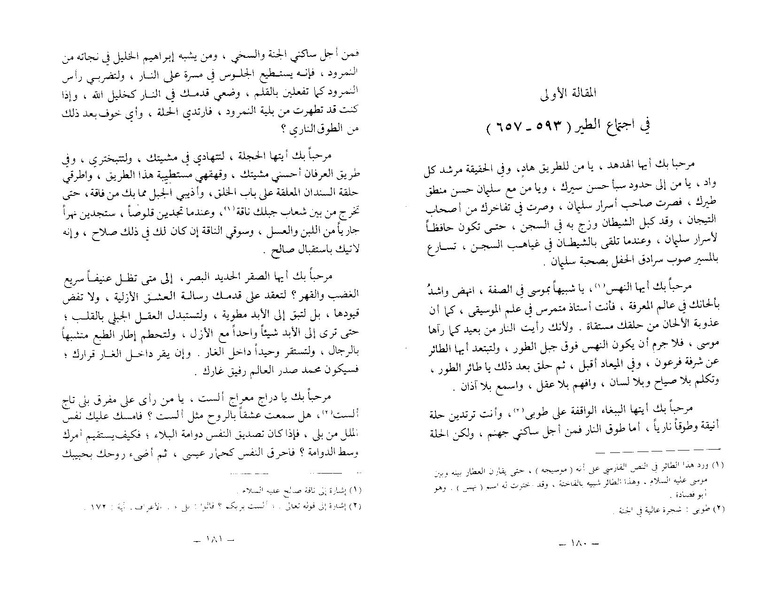 المقالة الأولى
في اجتماع الطير ( ٥٩٣ ـ ٦٥٧ )
مرحباً بك أيها الهدهد ، يا من للطريق هادٍ، وفي الحقيقة مرشد كل
واد ، يا من إلى حدود سبأ حسن سيرك ، ويا من مع سليمان حسن منطق
طيرك ، فصرت صاحب أسرار سليمان ، وصرت في تفاخرك من أصحاب
التيجان ، وقد كبل الشيطان وزج به في السجن ، حتى تكون حافظاً
لأسرار سليمان ، وعندما تلقى بالشيطان في غياهب السجن ، تسارع
بالمسير صوب سرادق الحفل بصحبة سليمان .
مرحباً بك أيها النهس (١)، يا شبيهاً بموسى في الصفة ، انهض واشدُ
بألحانك في عالم المعرفة ، فأنت أستاذ متمرس في علم الموسيقى ، كما أن
عذوبة الألحان من حلقك مستقاة . ولأنك رأيت النار من بعيد كما رآها
موسى ، فلا جرم أن يكون النهس فوق جبل الطور ، ولتبتعد أيها الطائر
عن شرفة فرعون ، وفي الميعاد أقبل ، ثم حلق بعد ذلك يا طائر الطور ،
وتكلم بلا صياح وبلا لسان ، وافهم بلا عقل ، واسمع بلا آذان .
مرحباً بك أيتها الببغاء الواقفة على طوبى (٢)، وأنت ترتدين حلة
أنيقة وطوقاً نارياً ، أما طوق النار فمن أجل ساكني جهنم ، ولكن الحلة
(١) ورد هذا الطائر في النص الفارسي على أنه ( موسيجه ) ، حتى يقارن العطار بينه وبين
موسى عليه السلام . وهذا الطائر شبيه بالفاختة ، وقد اخترت له اسم ( نهس ) . وهو
أبو فصادة .
(٢) طوبى : شجرة عالية في الجنة .
ـ ١٨٠ ـ
فمن أجل ساكني الجنة والسخي ، ومن يشبه إبراهيم الخليل في نجاته من
النمرود ، فإنه يستطيع الجلوس في مسرة على النار ، ولتضربي رأس
النمرود كما تفعلين بالقلم ، وضعي قدمك في النار كخليل الله ، وإذا
كنت قد تطهرت من بلية النمرود ، فارتدي الحلة ، وأي خوف بعد ذلك
من الطوق الناري ؟
مرحباً بك أيتها الحجلة ، لتتهادي في مشيتك ، ولتتبختري ، وفي
طريق العرفان أحسني مشيتك ، وقهقهي مستطيبة هذا الطريق ، واطرقي
حلقة السندان المعلقة على باب الخلق، وأذيبي الجبل مما بك من فاقة، حتى
تخرج من بين شعاب جبلك ناقة (١)، وعندما تجدين قلوصاً ، ستجدين نهراً
جارياً من اللبن والعسل ، وسوقي الناقة إن كان لك في ذلك صلاح ، وإنه
لآتيك باستقبال صالح .
مرحباً بك أيها الصقر الحديد البصر ، إلى متى تظل عنيفاً سريع
الغضب والقهر ؟ لتعقد على قدمك رسالة العشق الأزلية ، ولا تفض
قيودها ، بل لتبق إلى الأبد مطوية ، ولتستبدل العقل الجبلي بالقلب ؛
حتى ترى إلى الأبد شيئاً واحداً مع الأزل ، ولتحطم إطار الطبع متشبهاً
بالرجال ، ولتستقر وحيداً داخل الغار . وإن يقر داخل الغار قرارك ؛
فسيكون محمد صدر العالم رفيق غارك .
مرحباً بك يا دراج معراج ألست ، يا من رأى على مفرق بلى تاج
ألست (٢)، هل سمعت عشقاً بالروح مثل ألست ؟ فامسك عليك نفس
الملل من بلى ، فإذا كان تصديق النفس دوامة البلاء ؛ فكيف يستقيم أمرك
وسط الدوامة ؟ فاحرق النفس كحمار عيسى ، ثم أضيء روحك بحبيبك
(١) إشارة إلى ناقة صالح عليه السلام .
(٢) إشارة إلى قوله تعالى . « ألست بربكم ؟ قالوا : بلى » . الأعراف . آية : ١٧٢ .
ـ ١٨١ ـ